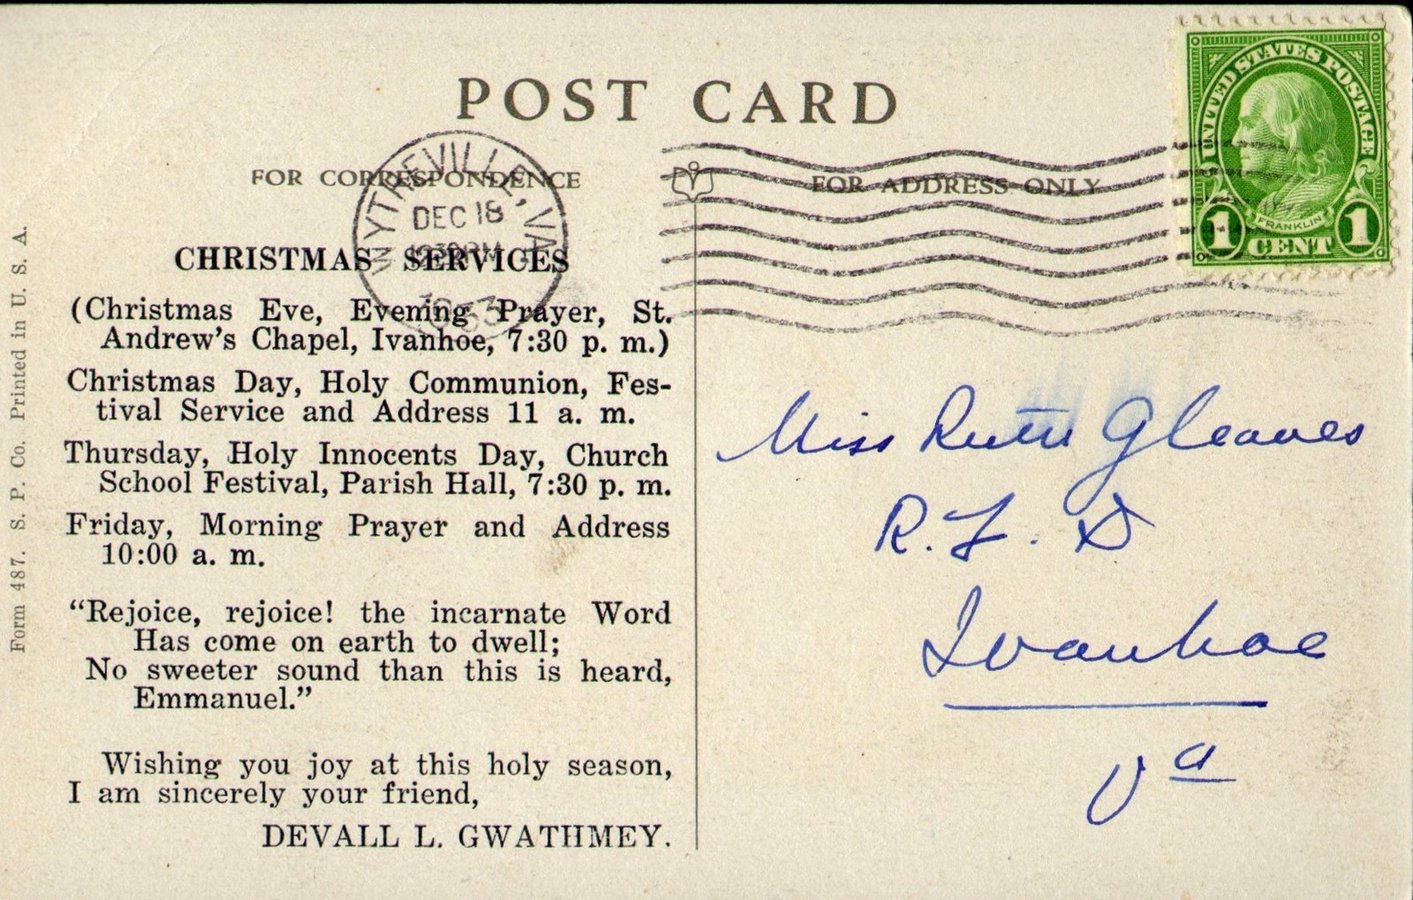 POST CARD
FOR CORRESPONDENCE
FOR ADDRESS ONLY
WYTHEVILLE, VA.
DEC 18
1933
UNITED STATES POSTAGE
FRANKLIN
1 CENT 1
CHRISTMAS SERVICES
(Christmas Eve, Evening Prayer, St.
Andrew's Chapel, Ivanhoe, 7:30 p. m.)
Christmas Day, Holy Communion, Fes-
tival Service and Address 11 a. m.
Thursday, Holy Innocents Day, Church
School Festival, Parish Hall, 7:30 p. m.
Friday, Morning Prayer and Address
10:00 a. m.
“Rejoice, rejoice! the incarnate Word
Has come on earth to dwell;
No sweeter sound than this is heard,
Emmanuel.”
Wishing you joy at this holy season,
I am sincerely your friend,
DEVALL L. GWATHMEY.
Miss Ruth Gleaves
R. F. D
Ivanhoe
Va
Form 487. S. P. Co. Printed in U. S. A.